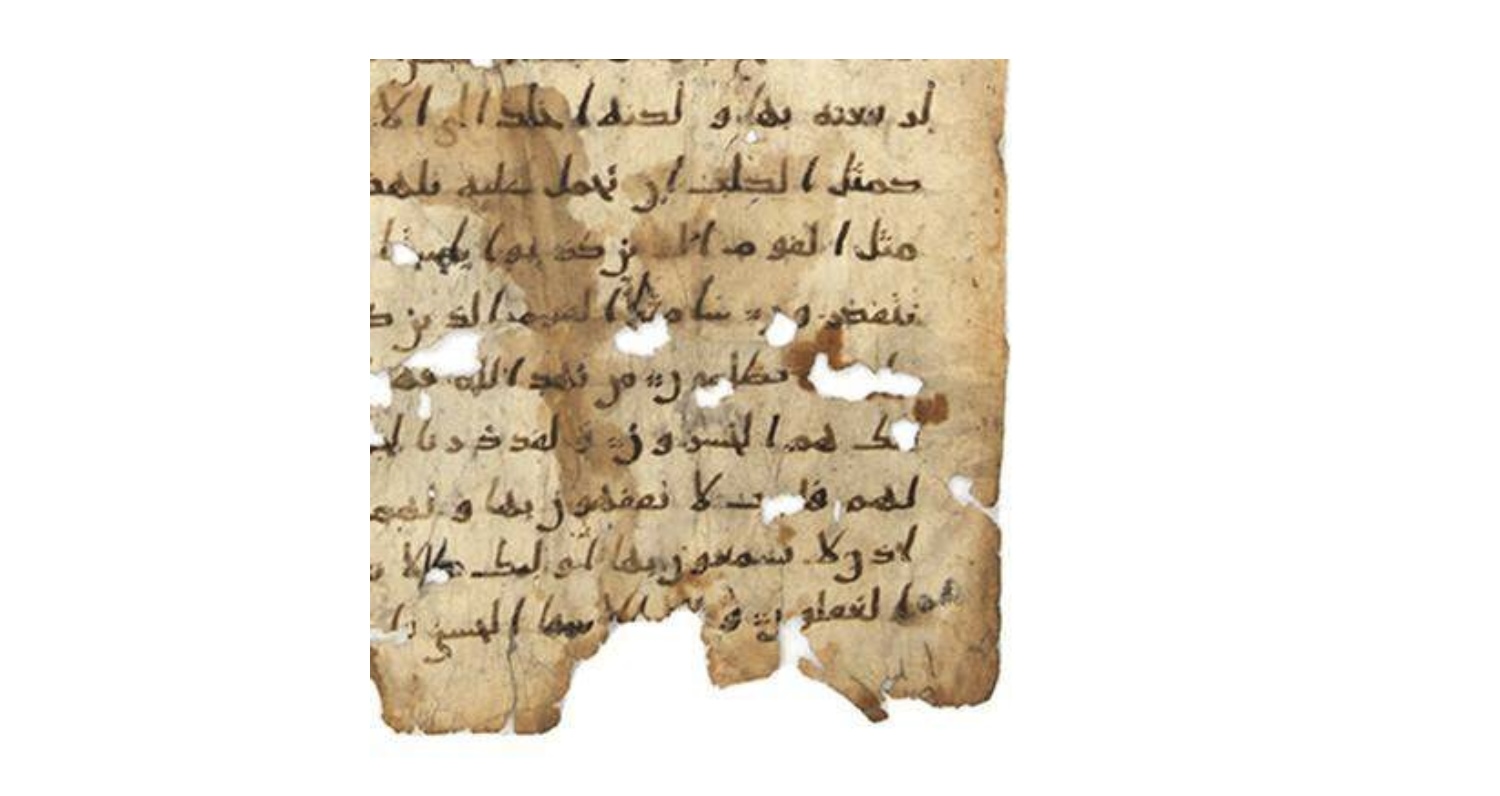 لرفعنه بها و لكنه اخلد الى الا
كمثل الكلب ان تحمل عليه يلهث
مثل القوم الذين كذبوا بايتنا
يتفكرون سا مثلا القوم الذين كذ
يظلمون من يهد الله فهو
ئك هم الخسرون و لقد ذرانا لج
لهم قلوب لا يفقهون بها و لهم
اذن لا يسمعون بها اولئك كالا
هم الغفلون و لله الاسما الحسنى